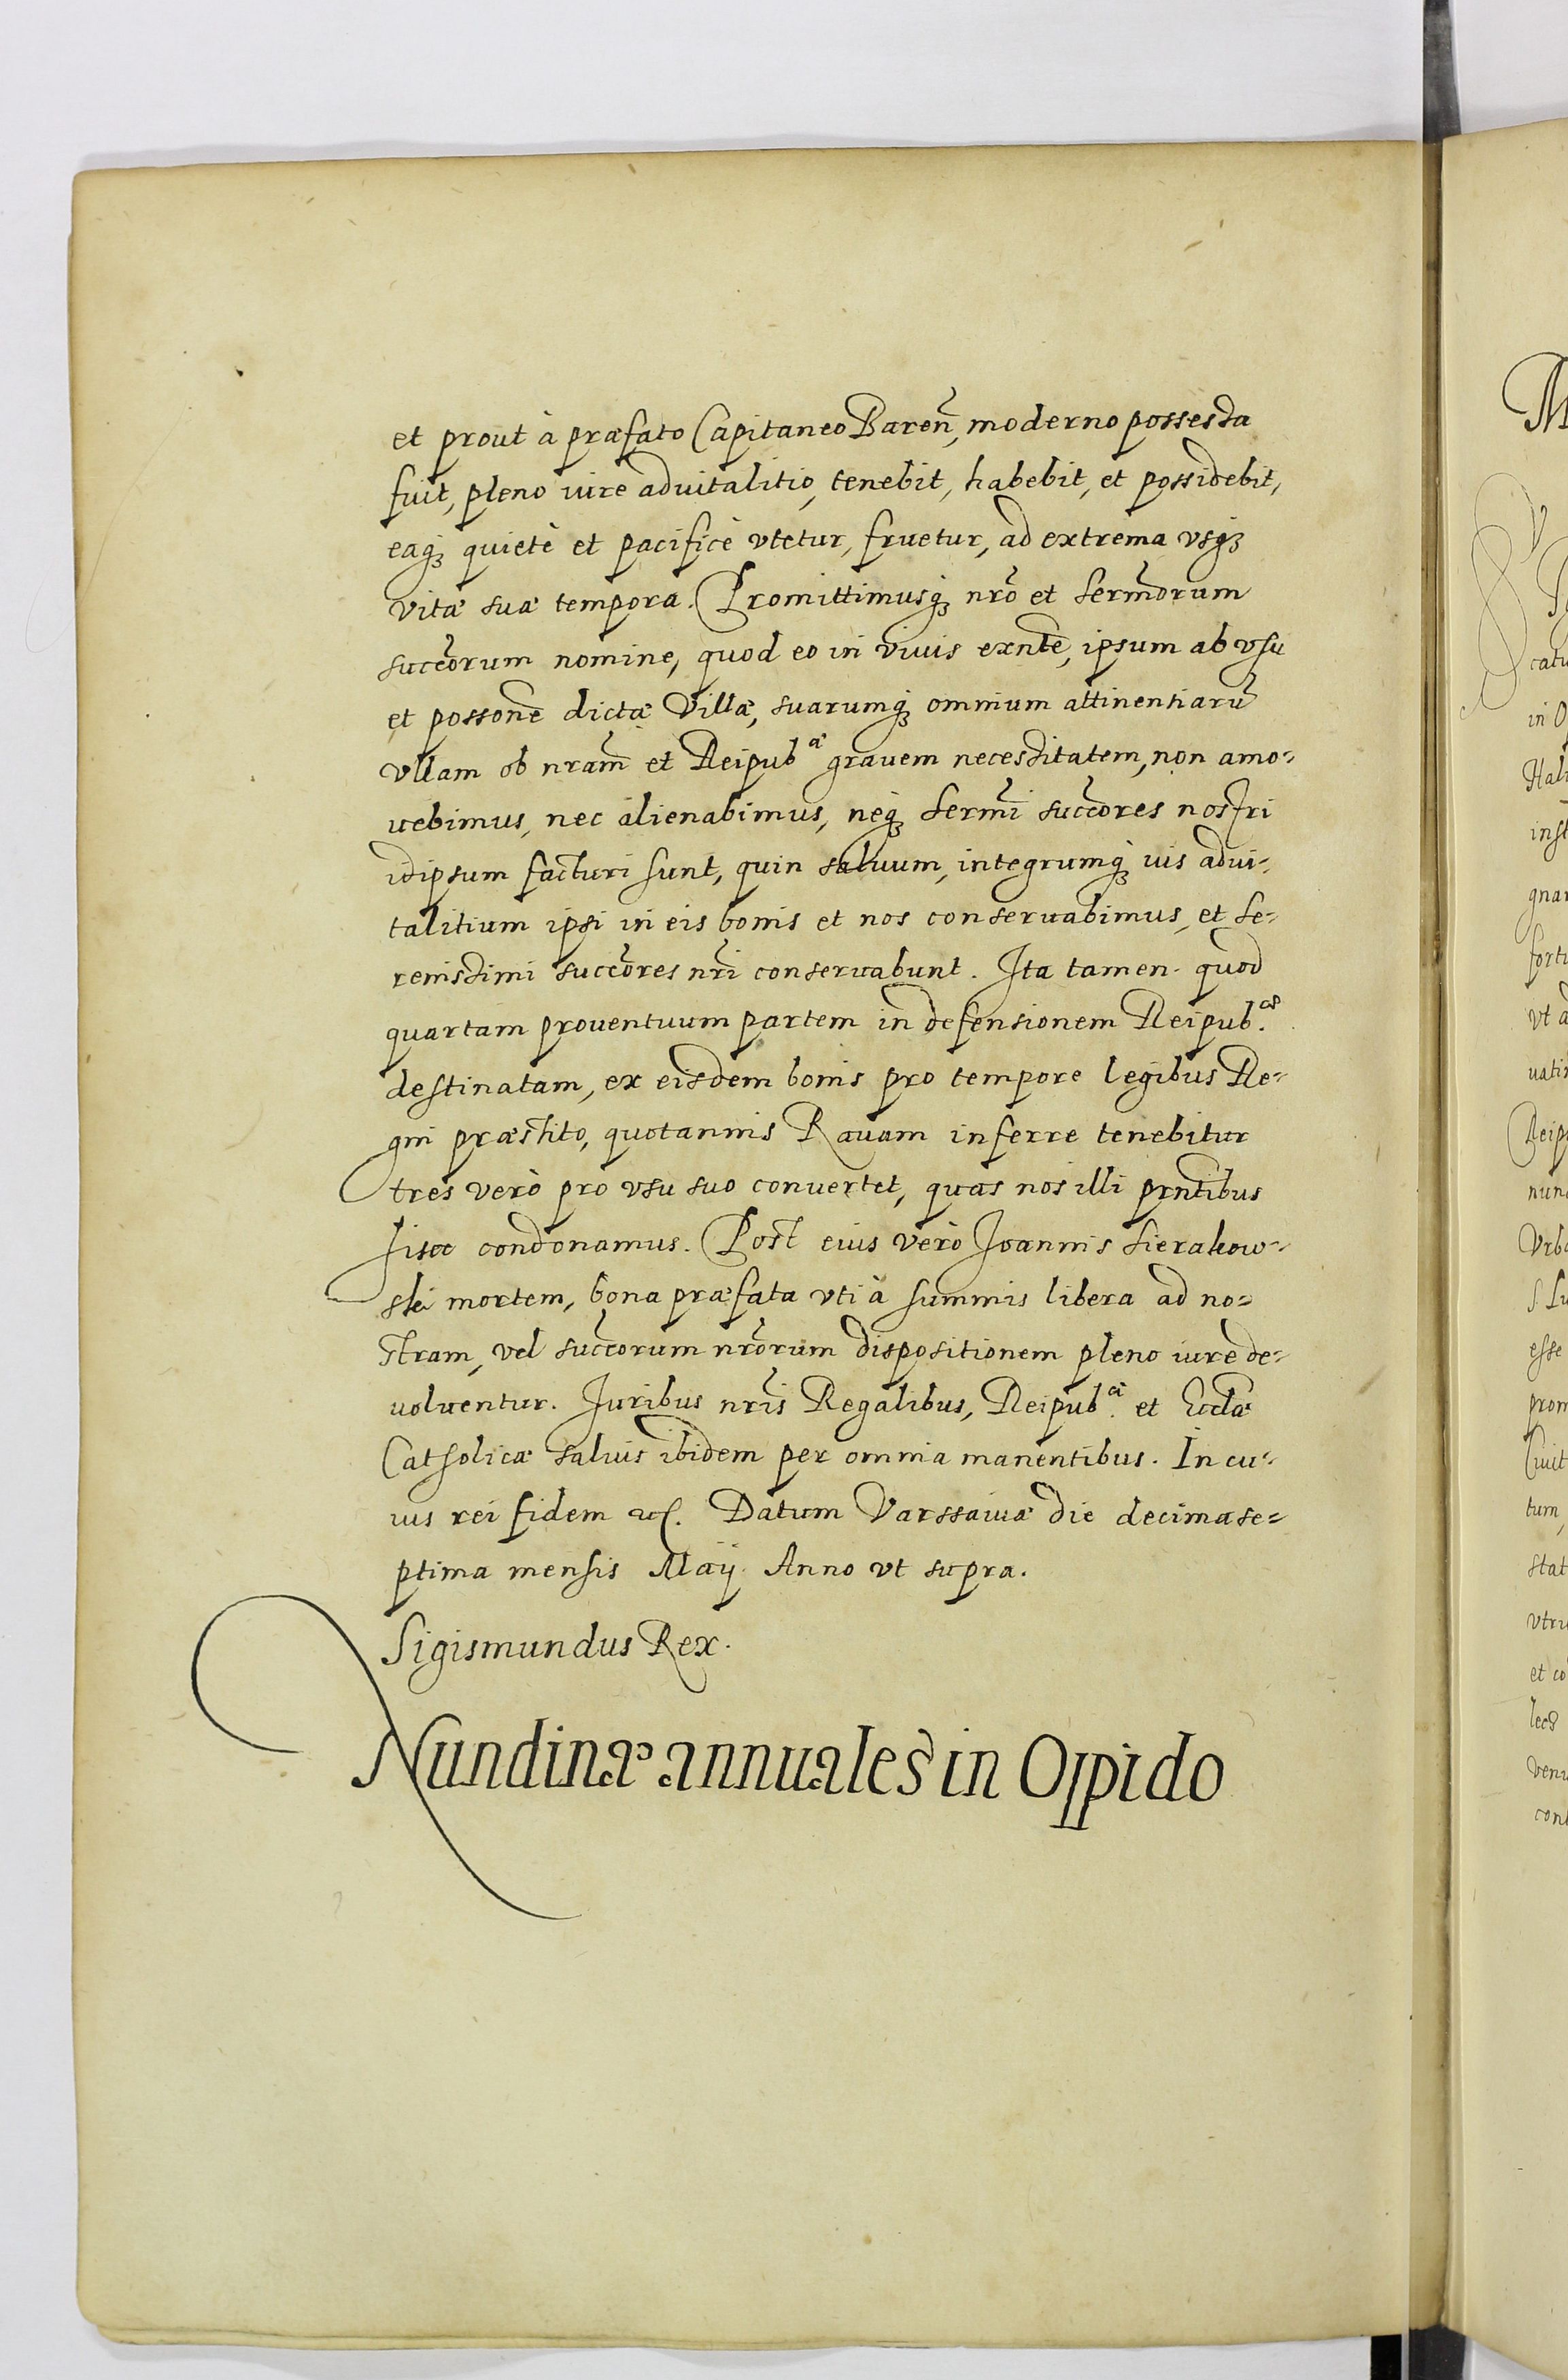 et prout à præfato Capitaneo Baren̄, moderno possessa
fuit, pleno iure aduitalitio, tenebit, habebit, et possidebit,
eaqꝫ quietè et pacificè vtetur, fruetur, ad extrema vsqꝫ
vitæ suæ tempora. Promittimusqꝫ nr̄o et Serm̄orum
succōrum nomine, quod eo in viuis exn̄te, ipsum ab vsu
et possōne dictæ Villæ, suarumqꝫ omnium attinentiarū
vllam ob nram̄ et Reipubᵃᵉ grauem necessitatem, non amo-
uebimus, nec alienabimus, neqꝫ Serm̄i succōres nostri
idipsum facturi sunt, quin saluum, integrumqꝫ ius adui-
talitium ipsi in eis bonis et nos conseruabimus, et Se-
renissimi succōres nr̄i conseruabunt. Ita tamen quod
quartam prouentuum partem in defensionem Reipub.ᵃᵉ
destinatam, ex eisdem bonis pro tempore legibus Re-
gni præstito, quotannis Rauam inferre tenebitur
tres verò pro vsu suo conuertet, quas nos illi prn̄tibus
hisce condonamus. Post eius verò Joannis Sierakow-
ski mortem, bona præfata vti à summis libera ad no-
stram, vel succōrum nr̄orum dispositionem pleno iure de-
uoluentur. Juribus nr̄is Regalibus, Reipub.ᵃᵉ et Eccl̄æ
Catholicæ saluis ibidem per omnia manentibus. In cu-
ius rei fidem etc. Datum Varssauiæ die decima se-
ptima mensis Maij Anno vt supra.
Sigismundus Rex.
Nundinæ annuales in Oppido